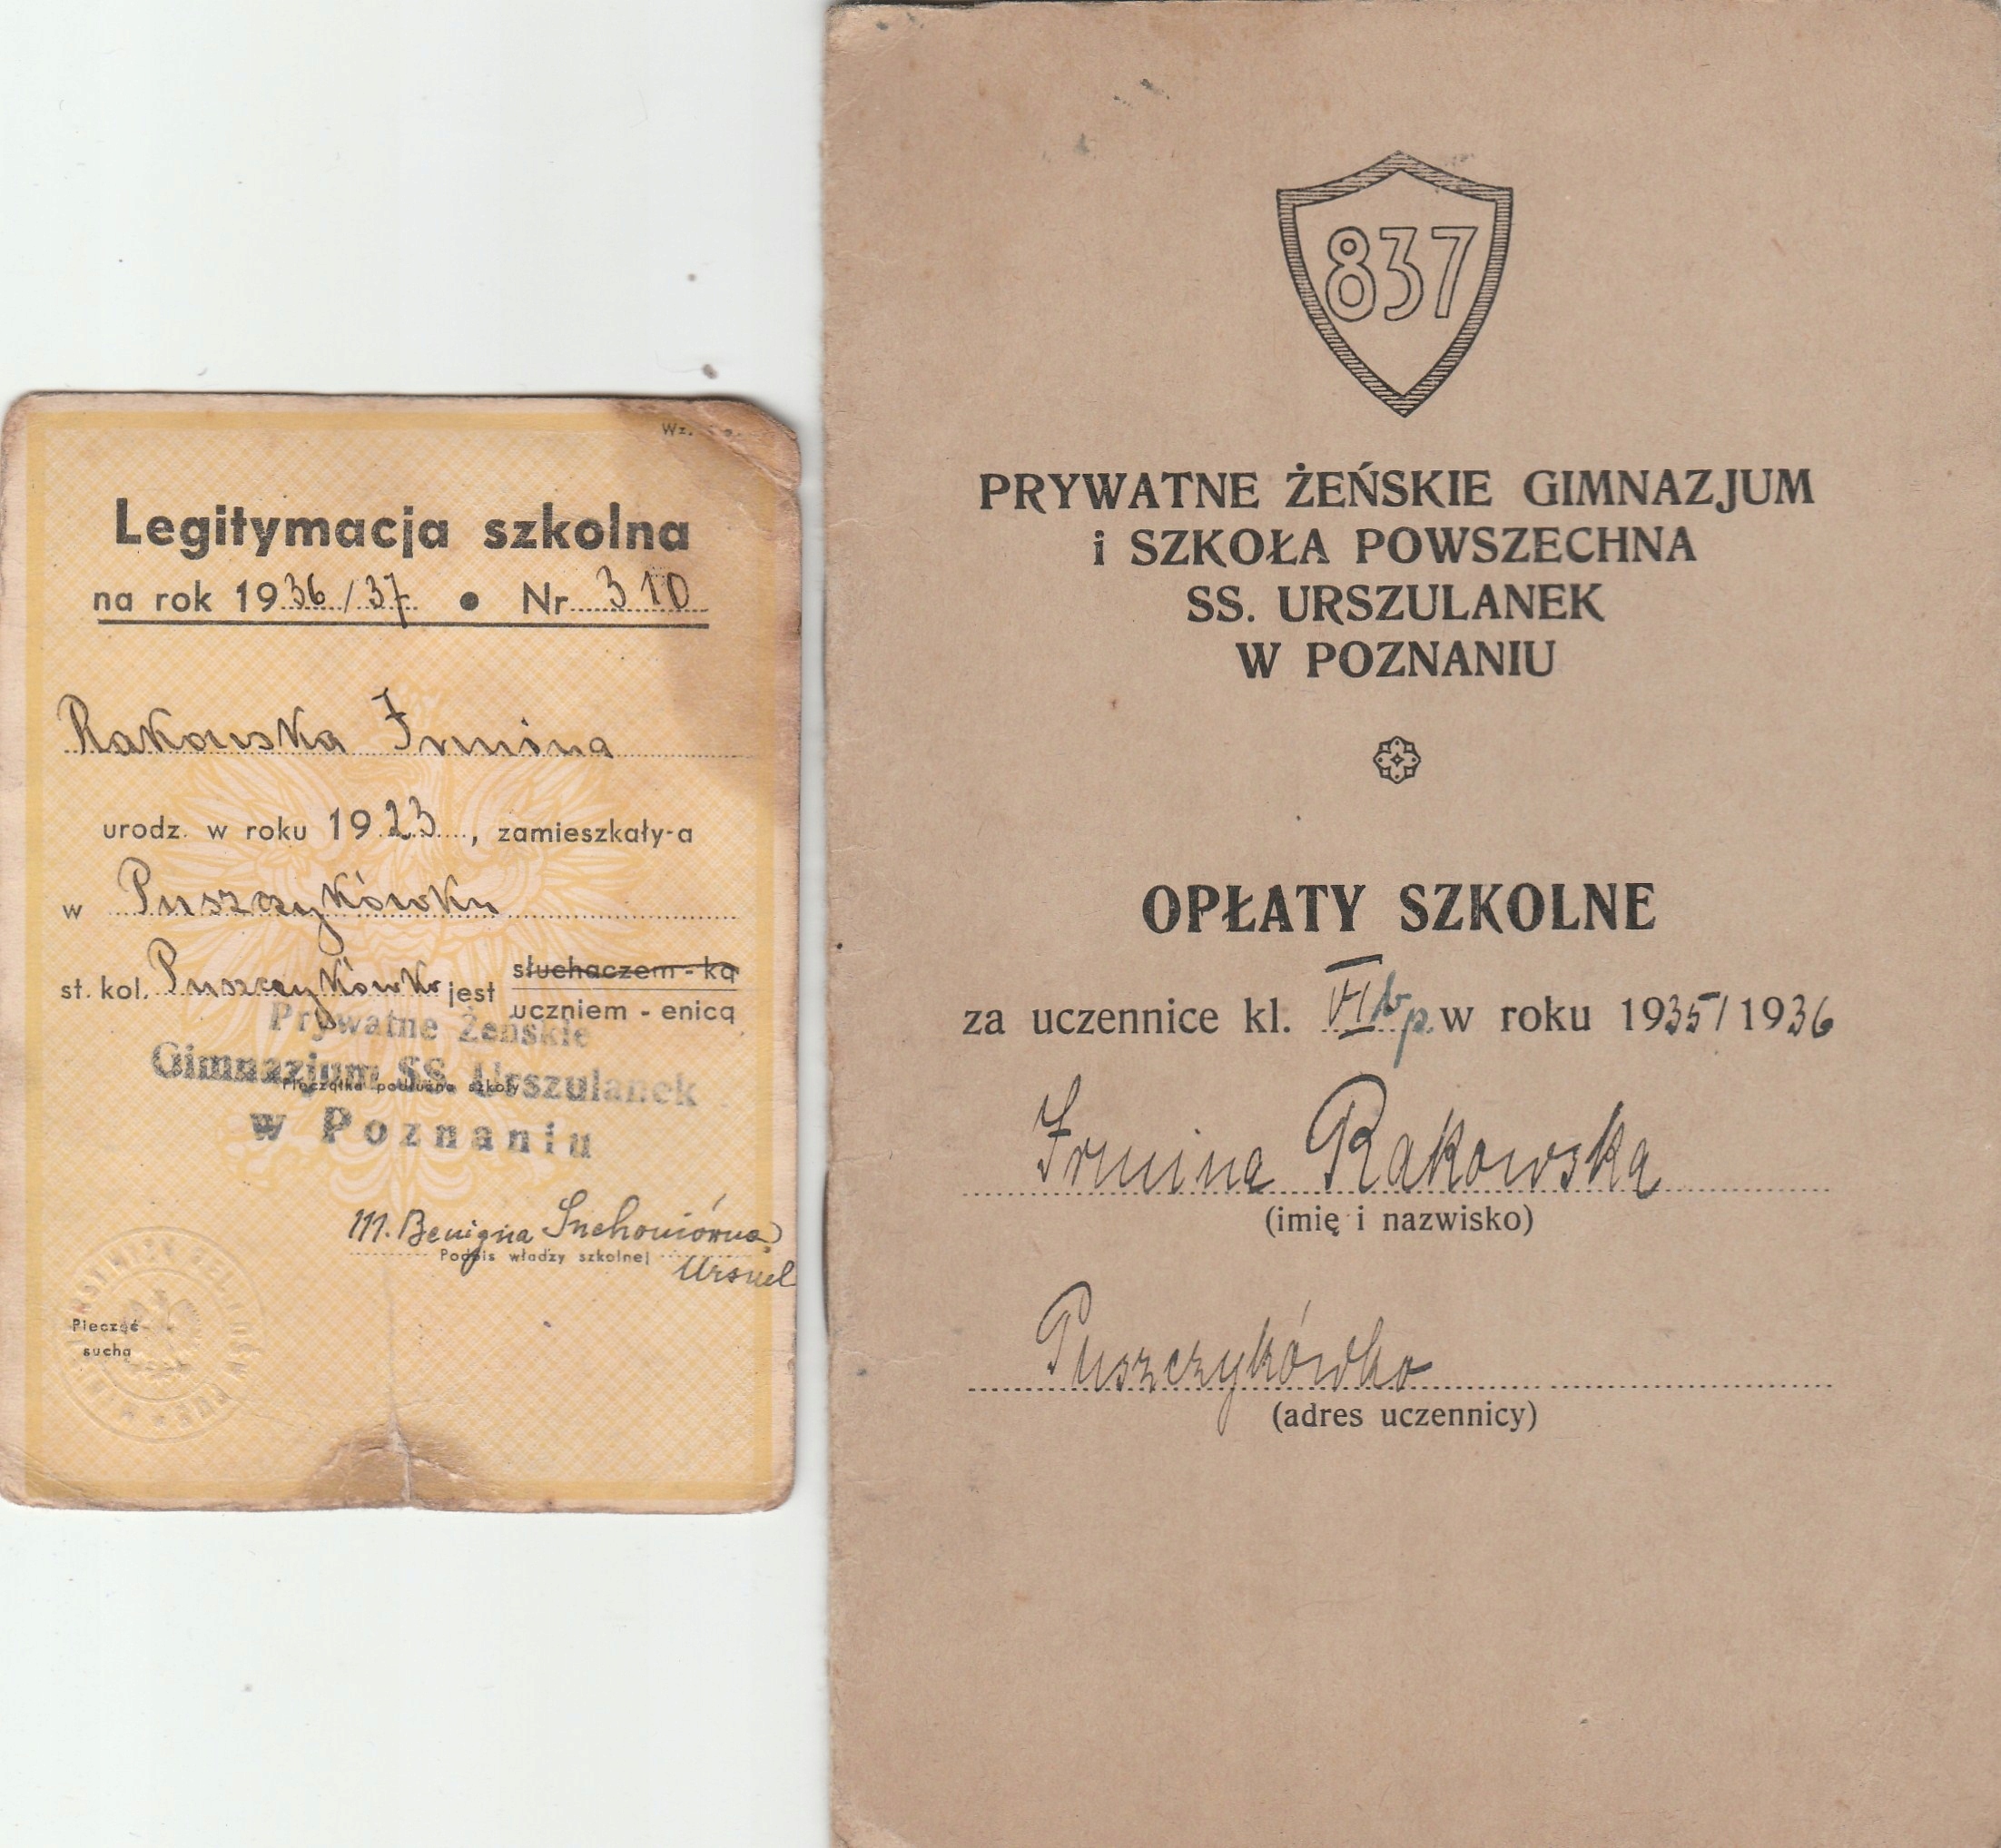 Legitymacja szkolna
na rok 1936/37 • Nr 310
Rakowska Irmina
urodz. w roku 1923, zamieszkały-a
w Puszczykówku
st. kol. Puszczykówko jest słuchaczem - ką
uczniem - enicą
Prywatne Żeńskie
Gimnazjum SS. Urszulanek
Pieczątka podłużna szkoły
w Poznaniu
M. Benigna
Podpis władzy szkolnej
Pieczęć
sucha
837
PRYWATNE ŻEŃSKIE GIMNAZJUM
i SZKOŁA POWSZECHNA
SS. URSZULANEK
W POZNANIU
OPŁATY SZKOLNE
za uczennice kl. VI b p. w roku 1935/1936
Irmina Rakowska
(imię i nazwisko)
Puszczykówko
(adres uczennicy)